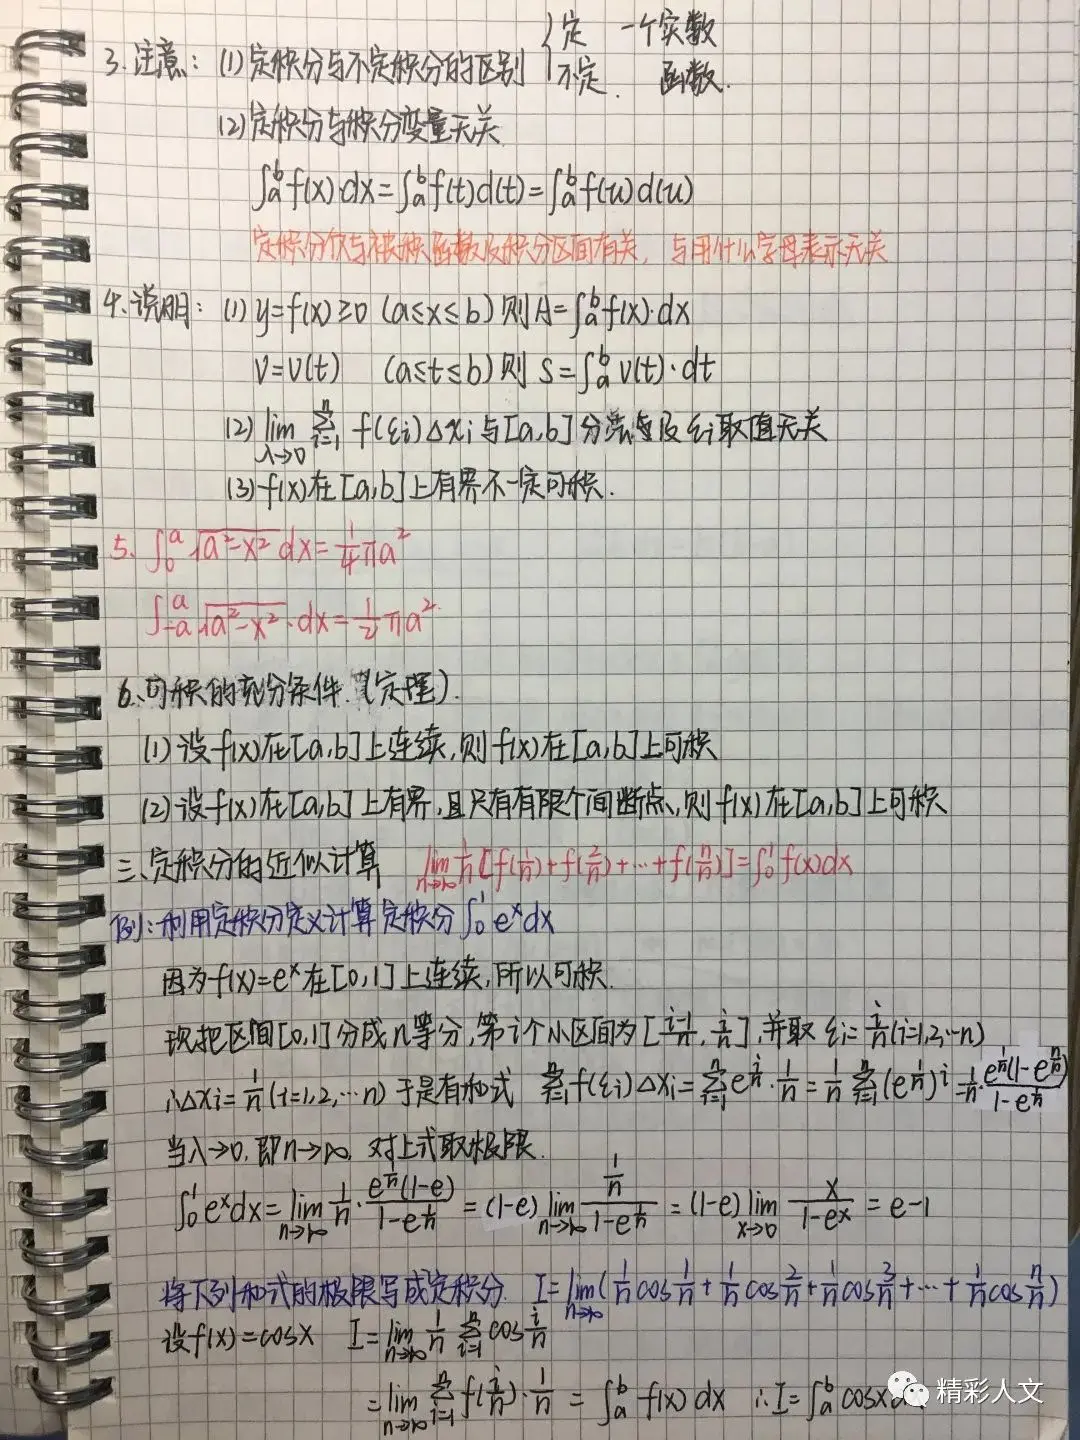 3.注意：(1)定积分与不定积分的区别 { 定 一个实数
不定. 函数.
(2)定积分与积分变量无关.
∫ₐᵇf(x)·dx=∫ₐᵇf(t)d(t)=∫ₐᵇf(u)d(u)
定积分仅与被积函数及积分区间有关，与用什么字母表示无关
4.说明：(1) y=f(x)≥0 (a≤x≤b) 则 A=∫ₐᵇf(x)·dx
V=V(t) (a≤t≤b) 则 S=∫ₐᵇv(t)·dt
(2) lim_{λ→0} Σ_{i=1}^{n} f(ξi)Δxi 与[a,b]分法及ξi取值无关
(3) f(x)在[a,b]上有界不一定可积.
5. ∫₀ᵃ√(a²-x²) dx=¼πa²
∫₋ₐᵃ√(a²-x²)·dx=½πa²
6、可积的充分条件.(定理).
(1)设f(x)在[a,b]上连续,则f(x)在[a,b]上可积
(2)设f(x)在[a,b]上有界,且只有有限个间断点,则f(x)在[a,b]上可积
三、定积分的近似计算 lim_{n→∞} 1/n [f(1/n)+f(2/n)+…+f(n/n)]=∫₀¹f(x)dx
例:利用定积分定义计算定积分∫₀¹eˣdx
因为f(x)=eˣ在[0,1]上连续,所以可积.
现把区间[0,1]分成n等分,第i个小区间为[(i-1)/n, i/n],并取ξi=i/n(i=1,2,…n)
∴Δxi=1/n(i=1,2,…n)于是有和式 Σ_{i=1}^{n} f(ξi)Δxi=Σ_{i=1}^{n} e^{i/n}·1/n=1/n Σ_{i=1}^{n} (e^{1/n})^i=1/n·e^{1/n}(1-e^{n/n})/(1-e^{1/n})
当λ→0,即n→∞,对上式取极限.
∫₀¹eˣdx=lim_{n→∞} 1/n·e^{1/n}(1-e)/(1-e^{1/n})=(1-e)lim_{n→∞} (1/n)/(1-e^{1/n})=(1-e)lim_{x→0} x/(1-eˣ)=e-1
将下列和式的极限写成定积分. I=lim_{n→∞}(1/n cos 1/n+1/n cos 2/n+1/n cos 3/n+…+1/n cos n/n)
设f(x)=cosx I=lim_{n→∞} 1/n Σ_{i=1}^{n} cos i/n
=lim_{n→∞} Σ_{i=1}^{n} f(i/n)·1/n=∫ₐᵇf(x)dx ∴I=∫ₐᵇcosx
精彩人文